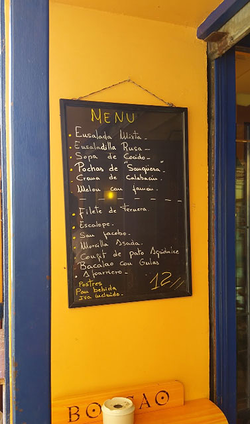 MENU
Ensalada Mixta -
Ensaladilla Rusa -
Sopa de Cocido -
Pochas de Sanguesa -
Crema de Calabacin -
Melon con jamon -
Filete de ternera -
Escalope -
San Jacobo -
Morcilla Asada -
Confit de pato
Bacalao con Gulas
Postres
Pan bebida
Iva incluido -
12
BO AO